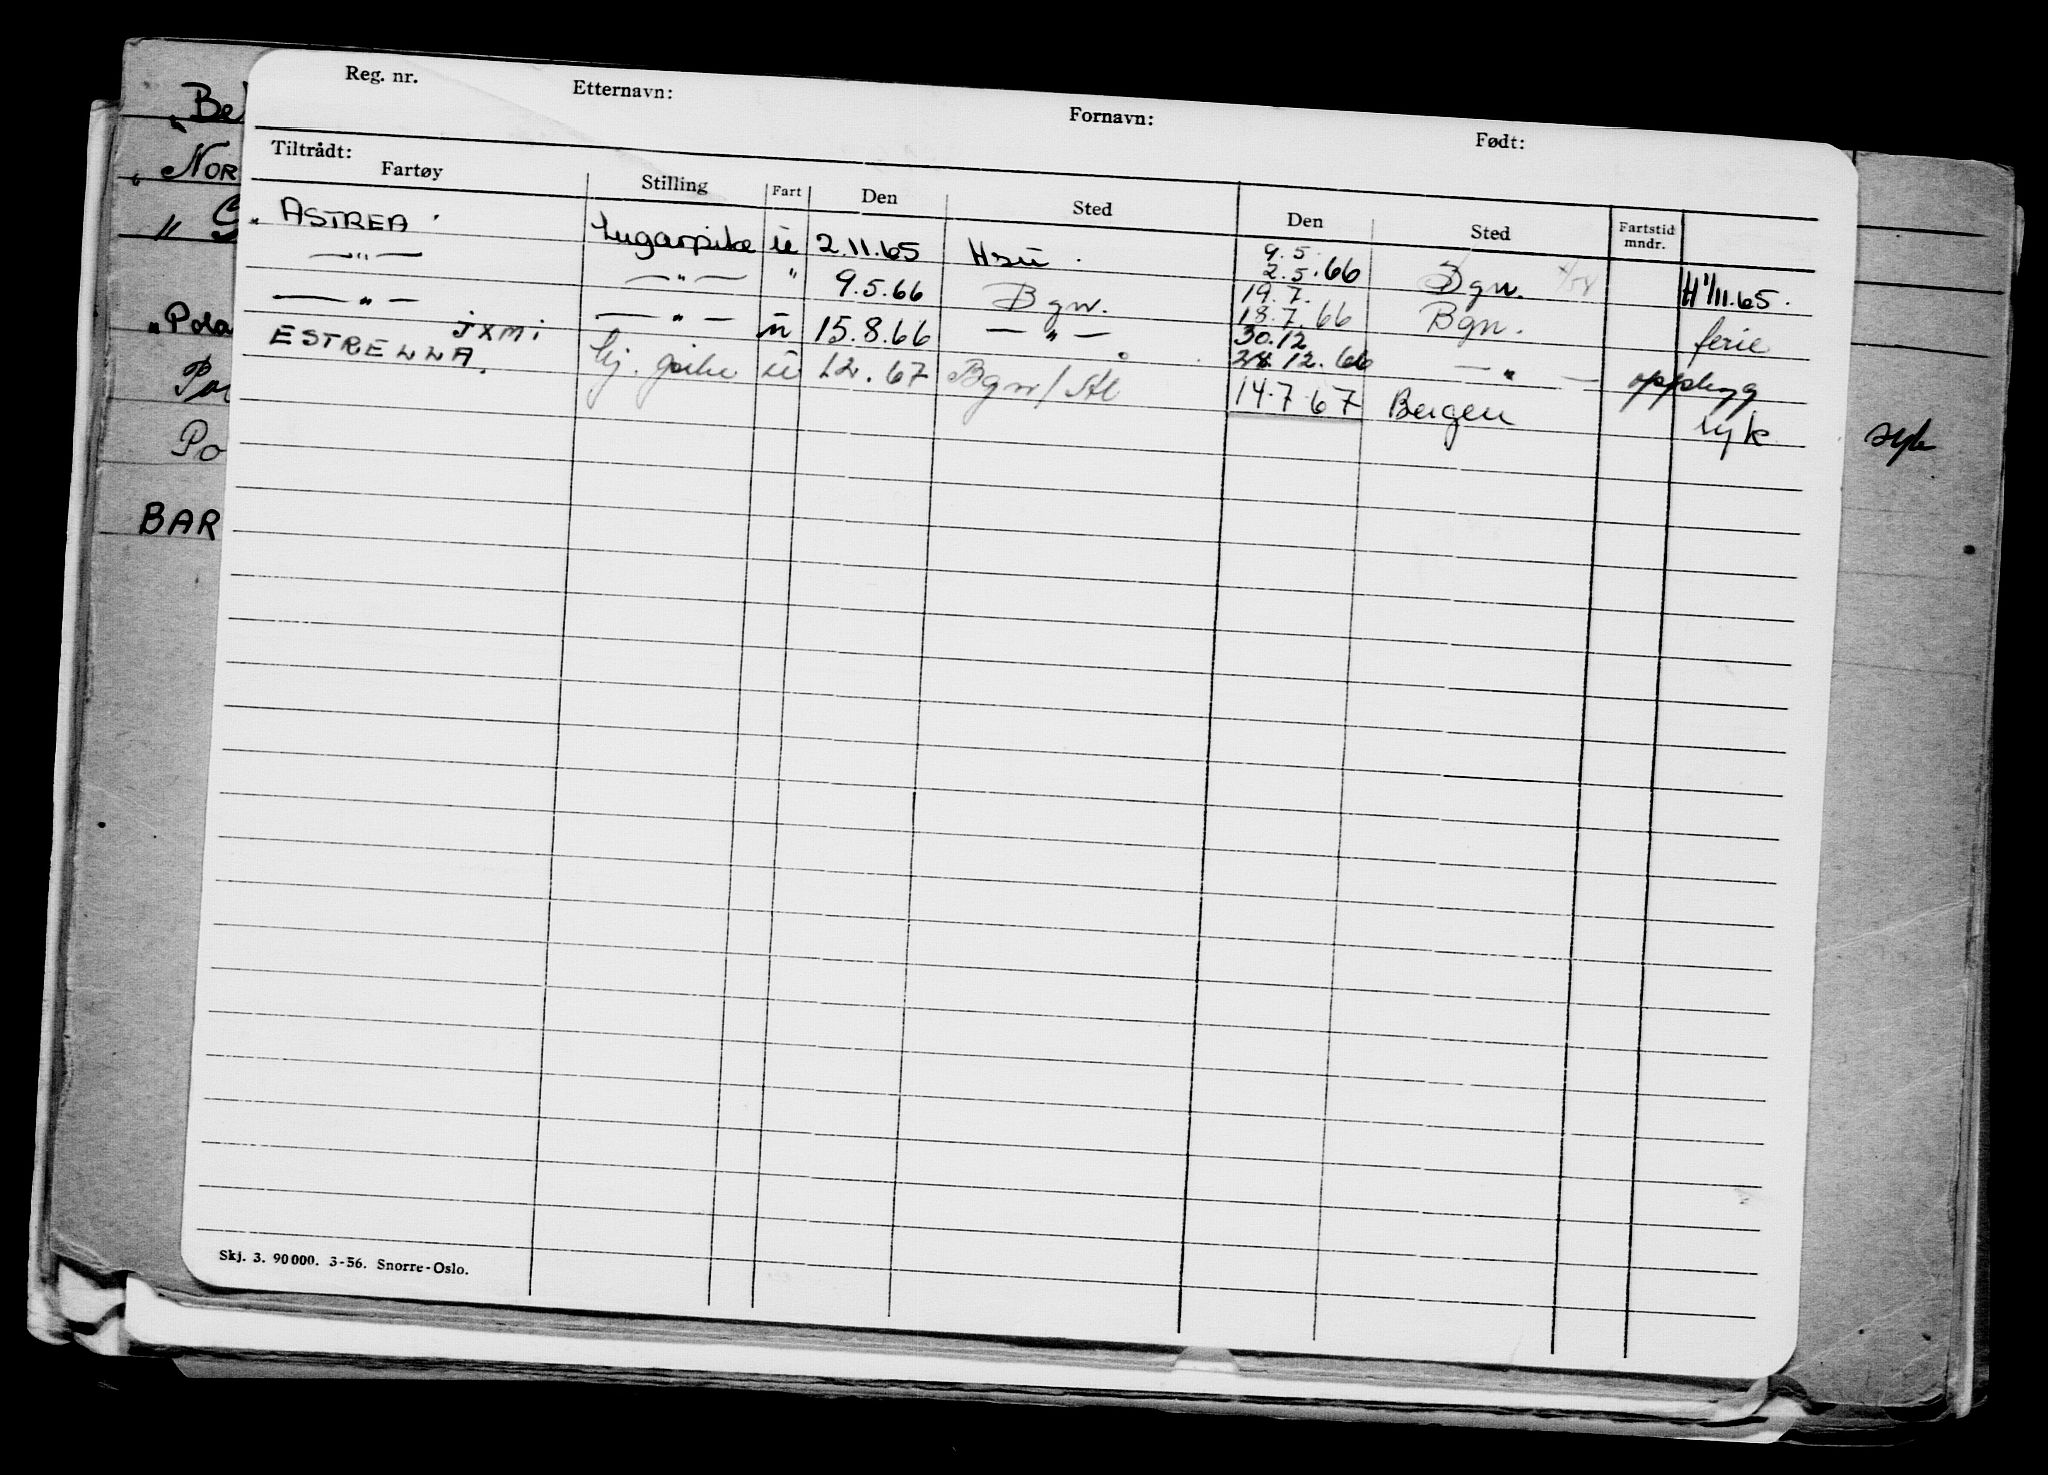 Reg. nr. Etternavn: Fornavn: Født:
Tiltrådt:
Fartøy Stilling Fart Den Sted Den Sted Fartstid mndr.
„ ASTREA ' Lugarpike u 2.11.65 Hsu . 9.5. 2.5.66 Bgn. H 1/11.65.
—"— —"— " 9.5.66 Bgn. 19.7. 18.7.66 Bgn. ferie
—"— —"— u 15.8.66 —"— 30.12 12.66 —"— oppbygg
JXMI
ESTRELLA. pike u 1.2.67 Bgn/ 14.7.67 Bergen syk
„ Be
„ NOR
„
„ Pola
Po
Po
BAR
syk
Skj. 3. 90000. 3-56. Snorre-Oslo.